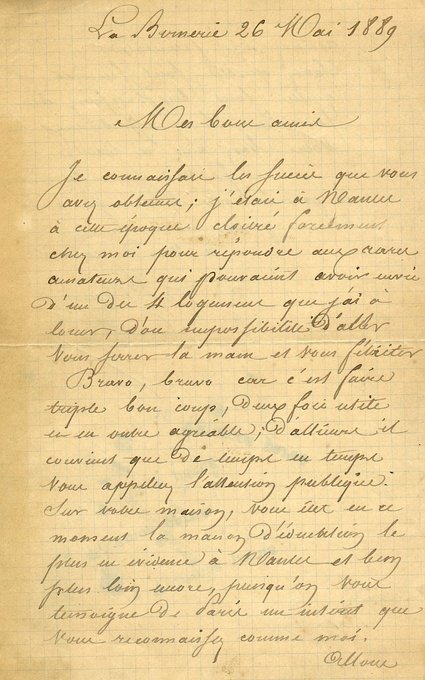 La Bernerie 26 Mai 1889
Mes bons amis
Je connaissais les succès que vous
avez obtenus; j'étais à Nantes
à cette époque cloitré forcément
chez moi pour répondre aux rares
amateurs qui pouvaient avoir envie
d'un des 4 logements que j'ai à
louer, d'où impossibilité d'aller
vous serrer la main et vous féliciter
Bravo, bravo car c'est faire
triple bon coup, deux fois utile
et en outre agréable; d'ailleurs il
convient que de temps en temps
vous appeliez l'attention publique
sur votre maison, vous êtes en ce
moment la maison d'éducation le
plus en évidence à Nantes et bien
plus loin encore, puisqu'on vous
temoigne de Paris un intérêt que
vous reconnaissez comme moi.